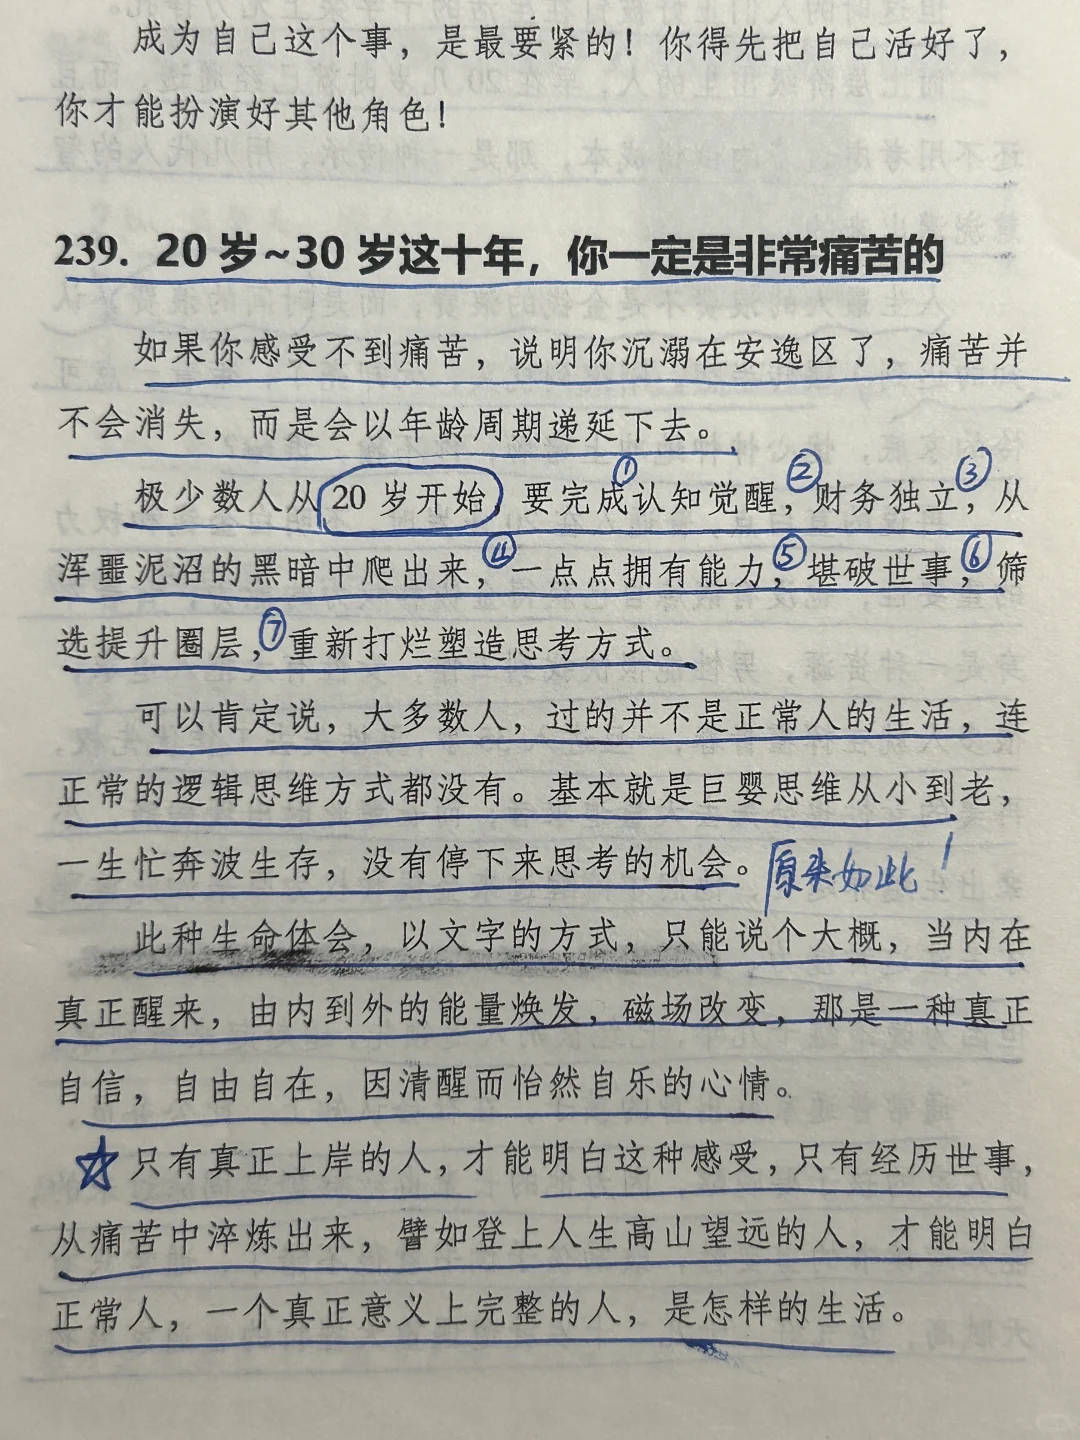 成为自己这个事，是最要紧的！你得先把自己活好了，
你才能扮演好其他角色！
239. 20岁~30岁这十年，你一定是非常痛苦的
如果你感受不到痛苦，说明你沉溺在安逸区了，痛苦并
不会消失，而是会以年龄周期递延下去。
极少数人从20岁开始，要完成①认知觉醒，②财务独立，③从
浑噩泥沼的黑暗中爬出来，④一点点拥有能力，⑤堪破世事，⑥筛
选提升圈层，⑦重新打烂塑造思考方式。
可以肯定说，大多数人，过的并不是正常人的生活，连
正常的逻辑思维方式都没有。基本就是巨婴思维从小到老，
一生忙奔波生存，没有停下来思考的机会。原来如此！
此种生命体会，以文字的方式，只能说个大概，当内在
真正醒来，由内到外的能量焕发，磁场改变，那是一种真正
自信，自由自在，因清醒而怡然自乐的心情。
☆只有真正上岸的人，才能明白这种感受，只有经历世事，
从痛苦中淬炼出来，譬如登上人生高山望远的人，才能明白
正常人，一个真正意义上完整的人，是怎样的生活。